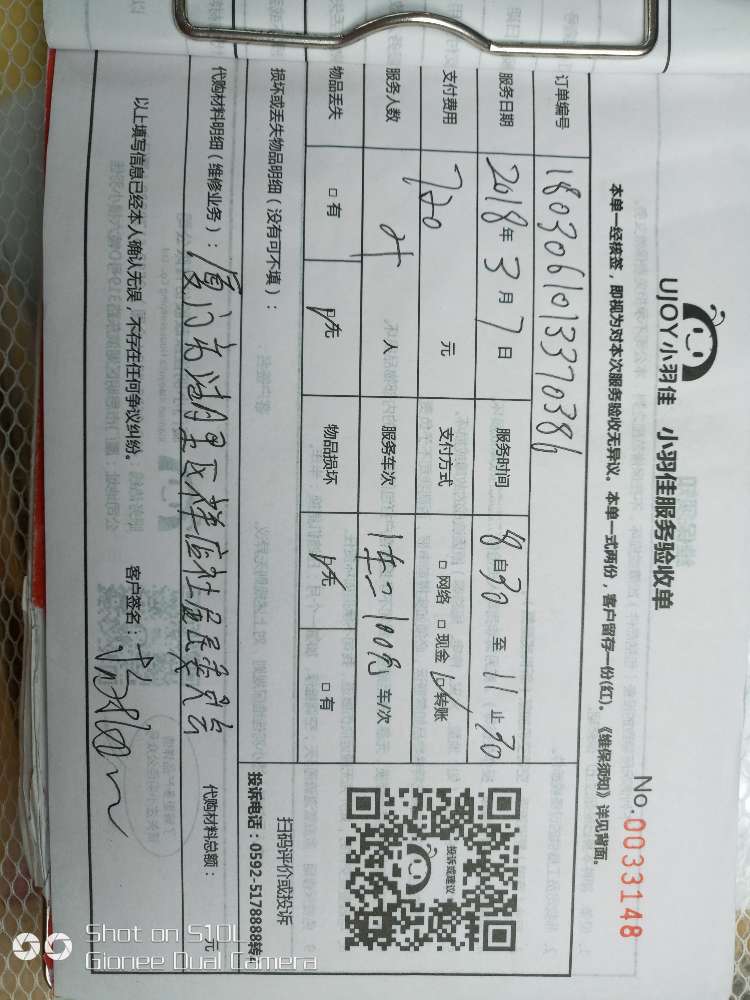 UJOY小羽佳 小羽佳服务验收单
No.0033148
本单一经核签，即视为对本次服务验收无异议。本单一式两份，客户留存一份(红)。《维保须知》详见背面。
订单编号 1803061013370386
服务日期 2018年3月7日 服务时间 8自30至11止30
支付费用 720元 支付方式 □网络 □现金 □转账
服务人数 人 服务车次 车/次
物品丢失 □有 □无 物品损坏 □无 □有
投诉或建议
扫码评价或投诉
投诉电话：0592-5178888转
损坏或丢失物品明细（没有可不填）：
代购材料明细（维修业务）：厦门市 社区居民委员会 代购材料总额： 元
以上填写信息已经本人确认无误，不存在任何争议纠纷。 客户签名：
Shot on S10L
Gionee Dual Camera